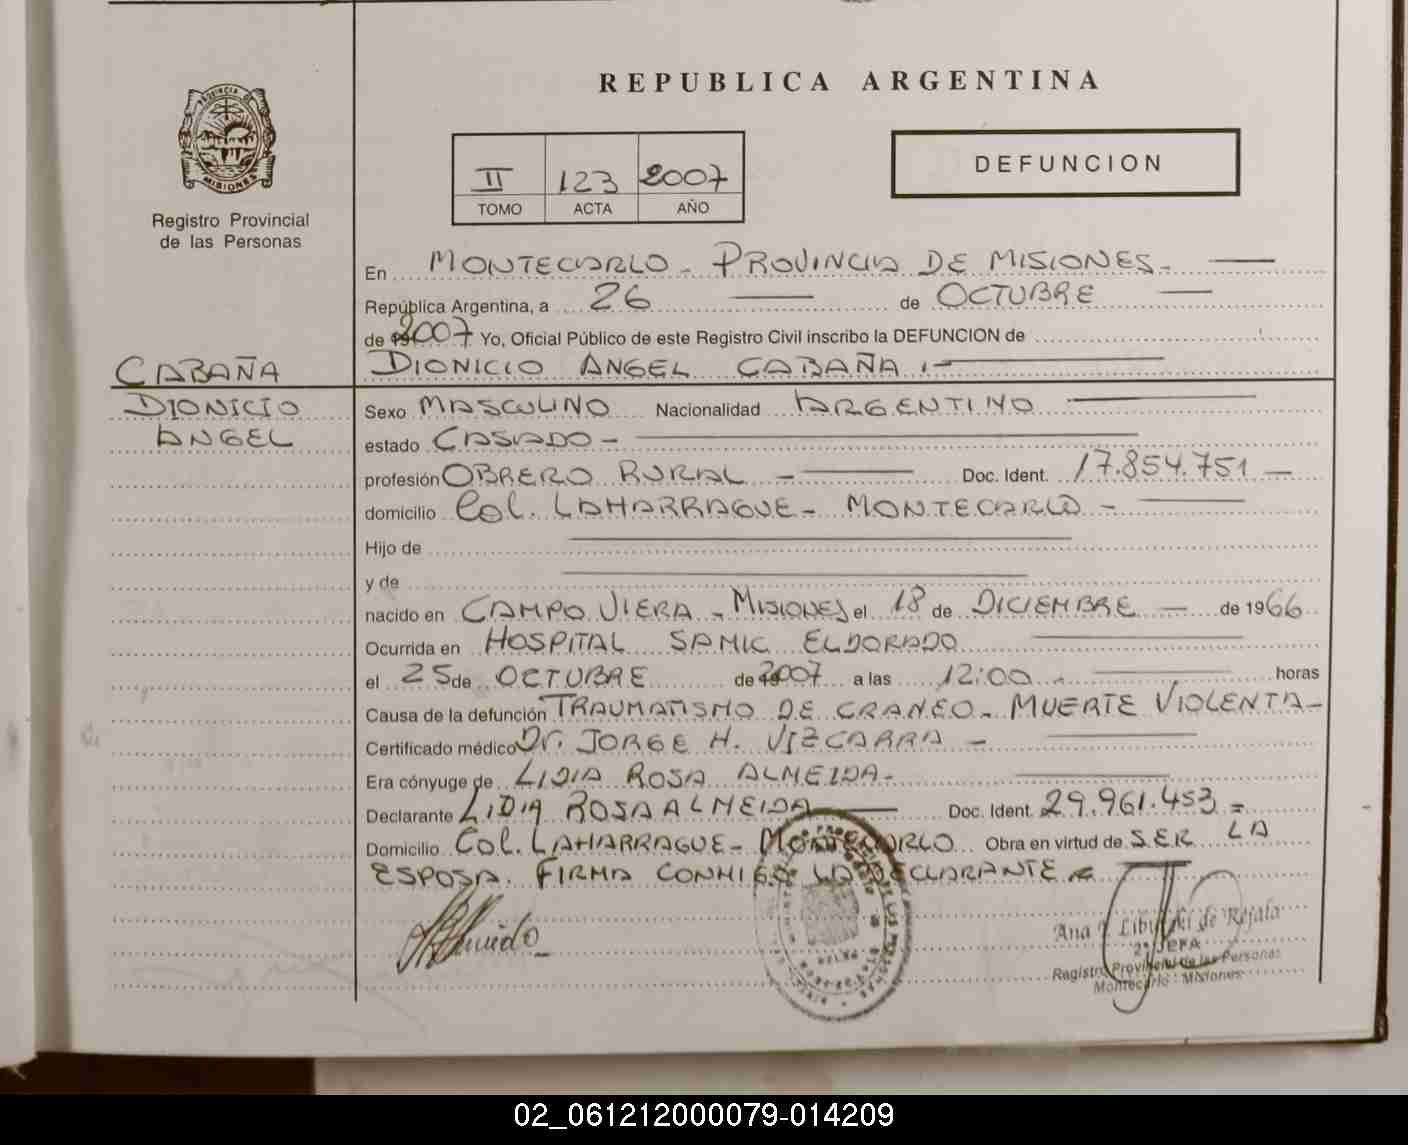 REPUBLICA ARGENTINA
PROVINCIA DE MISIONES
Registro Provincial
de las Personas
II 123 2007
TOMO ACTA AÑO
DEFUNCION
En MONTECARLO - PROVINCIA DE MISIONES -
República Argentina, a 26 de OCTUBRE
de 2007 Yo, Oficial Público de este Registro Civil inscribo la DEFUNCION de
DIONICIO ANGEL CABAÑA . -
CABAÑA
DIONICIO
ANGEL
Sexo MASCULINO Nacionalidad ARGENTINO
estado CASADO -
profesión OBRERO RURAL - Doc. Ident. 17.854.751 -
domicilio Col. LAHARRAGUE - MONTECARLO -
Hijo de
y de
nacido en CAMPO VIERA - MISIONES el 18 de DICIEMBRE - de 1966
Ocurrida en HOSPITAL SAMIC ELDORADO
el 25 de OCTUBRE de 2007 a las 12:00 . horas
Causa de la defunción TRAUMATISMO DE CRANEO - MUERTE VIOLENTA -
Certificado médico Dr. JORGE H. VIZCARRA -
Era cónyuge de LIDIA ROSA ALMEIDA -
Declarante LIDIA ROSA ALMEIDA Doc. Ident. 29.961.453 =
Domicilio Col. LAHARRAGUE - MONTECARLO Obra en virtud de SER LA
ESPOSA. FIRMA CONMIGO LA DECLARANTE
Ana de Rejala
2º JEFA
Registro Provincial de las Personas
Montecarlo - Misiones
02_061212000079-014209